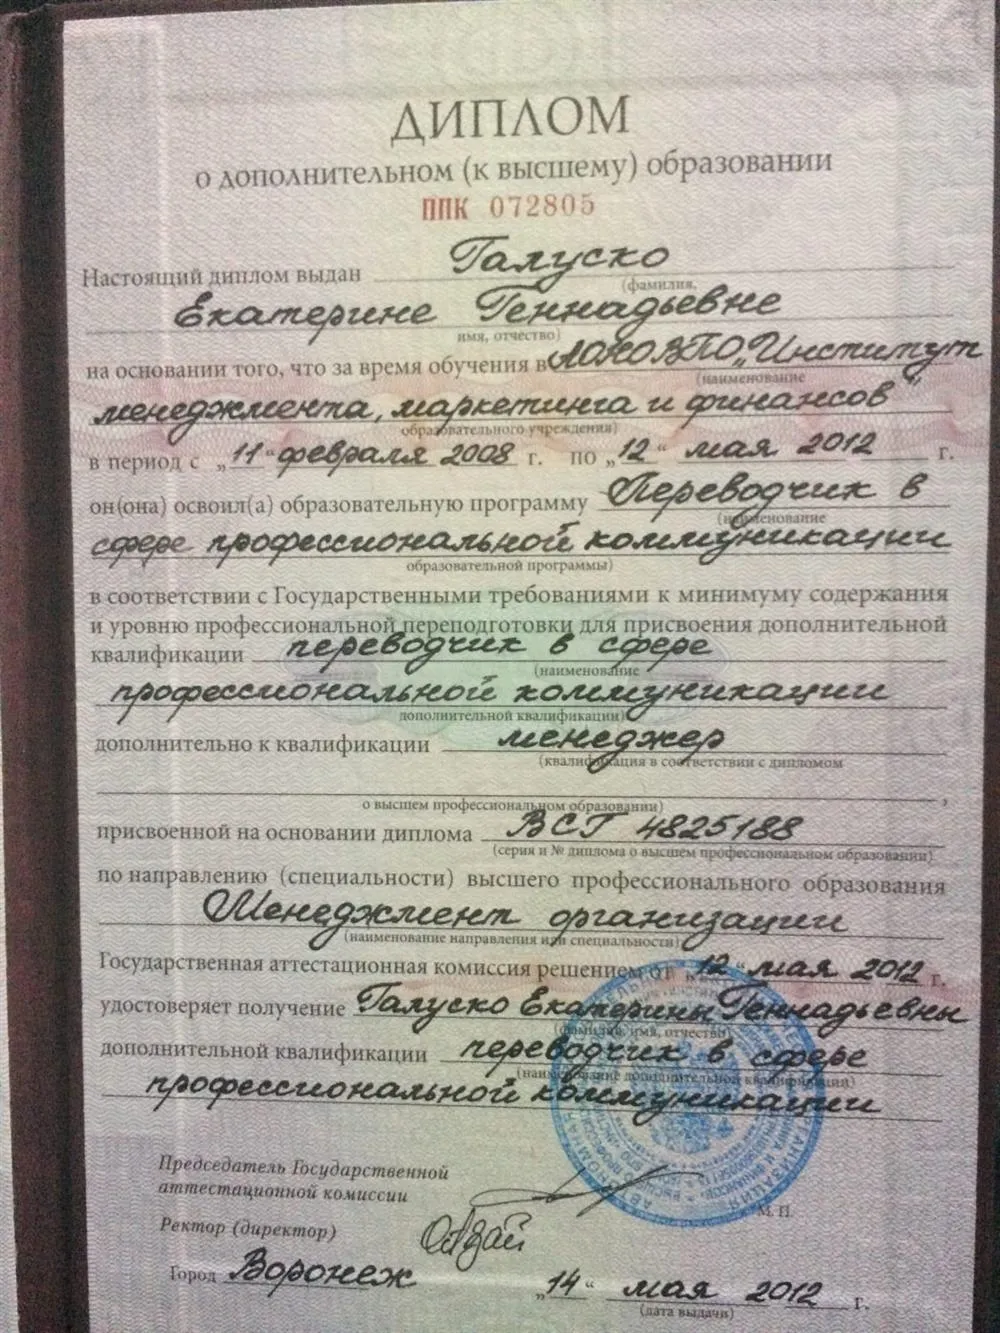 ДИПЛОМ
о дополнительном (к высшему) образовании
ППК 072805
Настоящий диплом выдан Галуско
(фамилия,
Екатерине Геннадьевне
имя, отчество)
на основании того, что за время обучения в АОНОВПО „Институт
(наименование
менеджмента, маркетинга и финансов“
образовательного учреждения)
в период с „11“ февраля 2008 г. по „12“ мая 2012 г.
он(она) освоил(а) образовательную программу Переводчик в
(наименование
сфере профессиональной коммуникации
образовательной программы)
в соответствии с Государственными требованиями к минимуму содержания
и уровню профессиональной переподготовки для присвоения дополнительной
квалификации переводчик в сфере
(наименование
профессиональной коммуникации
дополнительной квалификации)
дополнительно к квалификации менеджер
(квалификация в соответствии с дипломом
,
о высшем профессиональном образовании)
присвоенной на основании диплома ВСГ 4825188
(серия и № диплома о высшем профессиональном образовании)
по направлению (специальности) высшего профессионального образования
Менеджмент организации
(наименование направления или специальности)
Государственная аттестационная комиссия решением от „12“ мая 2012 г.
удостоверяет получение Галуско Екатерины Геннадьевны
(фамилия, имя, отчество)
дополнительной квалификации переводчик в сфере
(наименование дополнительной квалификации)
профессиональной коммуникации
Председатель Государственной
аттестационной комиссии
М. П.
Ректор (директор)
Город Воронеж
„14“ мая 2012 г.
(дата выдачи)